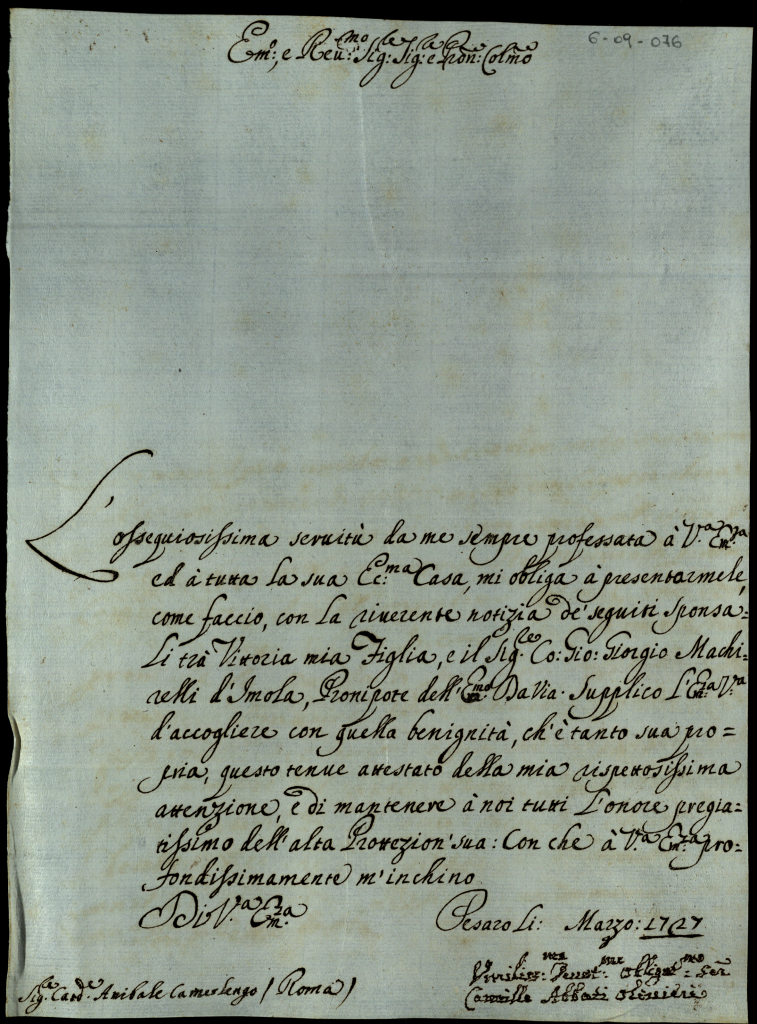 6-09-076
Em:º, e Reu:mo Sig:re Sig:re e Pron: Colmo
L'ossequiosissima seruitù da me sempre professata à V.a Em:za
ed à tutta la sua Ec:ma Casa, mi obliga à presentarmele,
come faccio, con la riuerente notizia de' seguiti sponsa=
li trà Vittoria mia Figlia, e il Sig.re Co: Gio: Giorgio Machi=
relli d'Imola, Pronipote dell'Em:mo Da Via. Supplico L'Em:za V.a
d'accogliere con quella benignità, ch'è tanto sua pro=
pria, questo tenue attestato della mia rispettosissima
attenzione, e di mantenere à noi tutti l'onore pregia=
tissimo dell'alta Protezion' sua: Con che à V.a Em:za pro=
fondissimamente m'inchino
Di V.a Em:za
Pesaro Li: Marzo: 1727
Sig.re Card.e Anibale Camerlengo (Roma)
Vmilis:mo Deuot:mo Obligat:mo Ser
Camillo Abbati Oliuieri